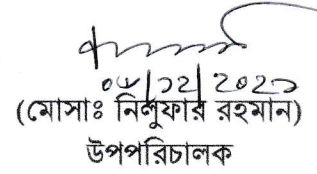 ০৮/১২/২০২১
(মোসাঃ নিলুফার রহমান)
উপপরিচালক